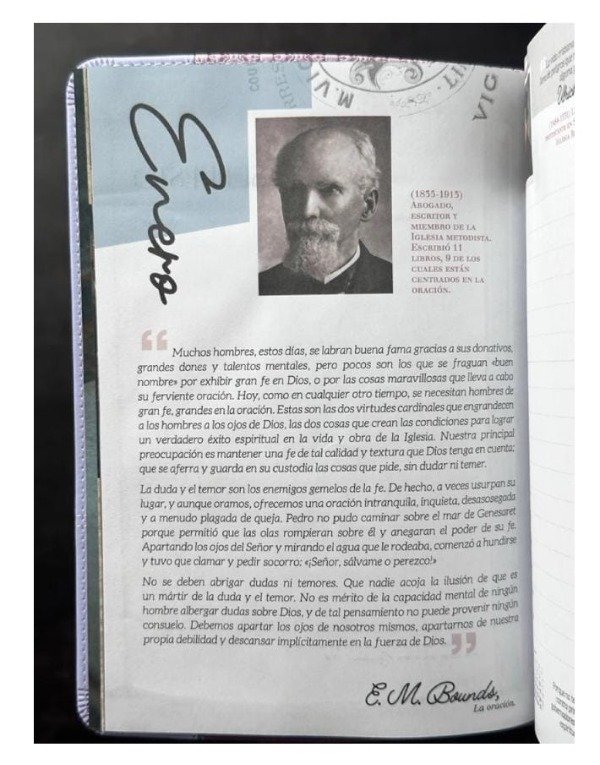 Enero
M. VIO
LIT
VIG
(1835-1913)
ABOGADO,
ESCRITOR Y
MIEMBRO DE LA
IGLESIA METODISTA.
ESCRIBIÓ 11
LIBROS, 9 DE LOS
CUALES ESTÁN
CENTRADOS EN LA
ORACIÓN.
“ Muchos hombres, estos días, se labran buena fama gracias a sus donativos,
grandes dones y talentos mentales, pero pocos son los que se fraguan «buen
nombre» por exhibir gran fe en Dios, o por las cosas maravillosas que lleva a cabo
su ferviente oración. Hoy, como en cualquier otro tiempo, se necesitan hombres de
gran fe, grandes en la oración. Estas son las dos virtudes cardinales que engrandecen
a los hombres a los ojos de Dios, las dos cosas que crean las condiciones para lograr
un verdadero éxito espiritual en la vida y obra de la Iglesia. Nuestra principal
preocupación es mantener una fe de tal calidad y textura que Dios tenga en cuenta;
que se aferra y guarda en su custodia las cosas que pide, sin dudar ni temer.
La duda y el temor son los enemigos gemelos de la fe. De hecho, a veces usurpan su
lugar, y aunque oramos, ofrecemos una oración intranquila, inquieta, desasosegada
y a menudo plagada de queja. Pedro no pudo caminar sobre el mar de Genesaret
porque permitió que las olas rompieran sobre él y anegaran el poder de su fe.
Apartando los ojos del Señor y mirando el agua que le rodeaba, comenzó a hundirse
y tuvo que clamar y pedir socorro: «¡Señor, sálvame o perezco!»
No se deben abrigar dudas ni temores. Que nadie acoja la ilusión de que es
un mártir de la duda y el temor. No es mérito de la capacidad mental de ningún
hombre albergar dudas sobre Dios, y de tal pensamiento no puede provenir ningún
consuelo. Debemos apartar los ojos de nosotros mismos, apartarnos de nuestra
propia debilidad y descansar implícitamente en la fuerza de Dios. ”
E. M. Bounds,
La oración.